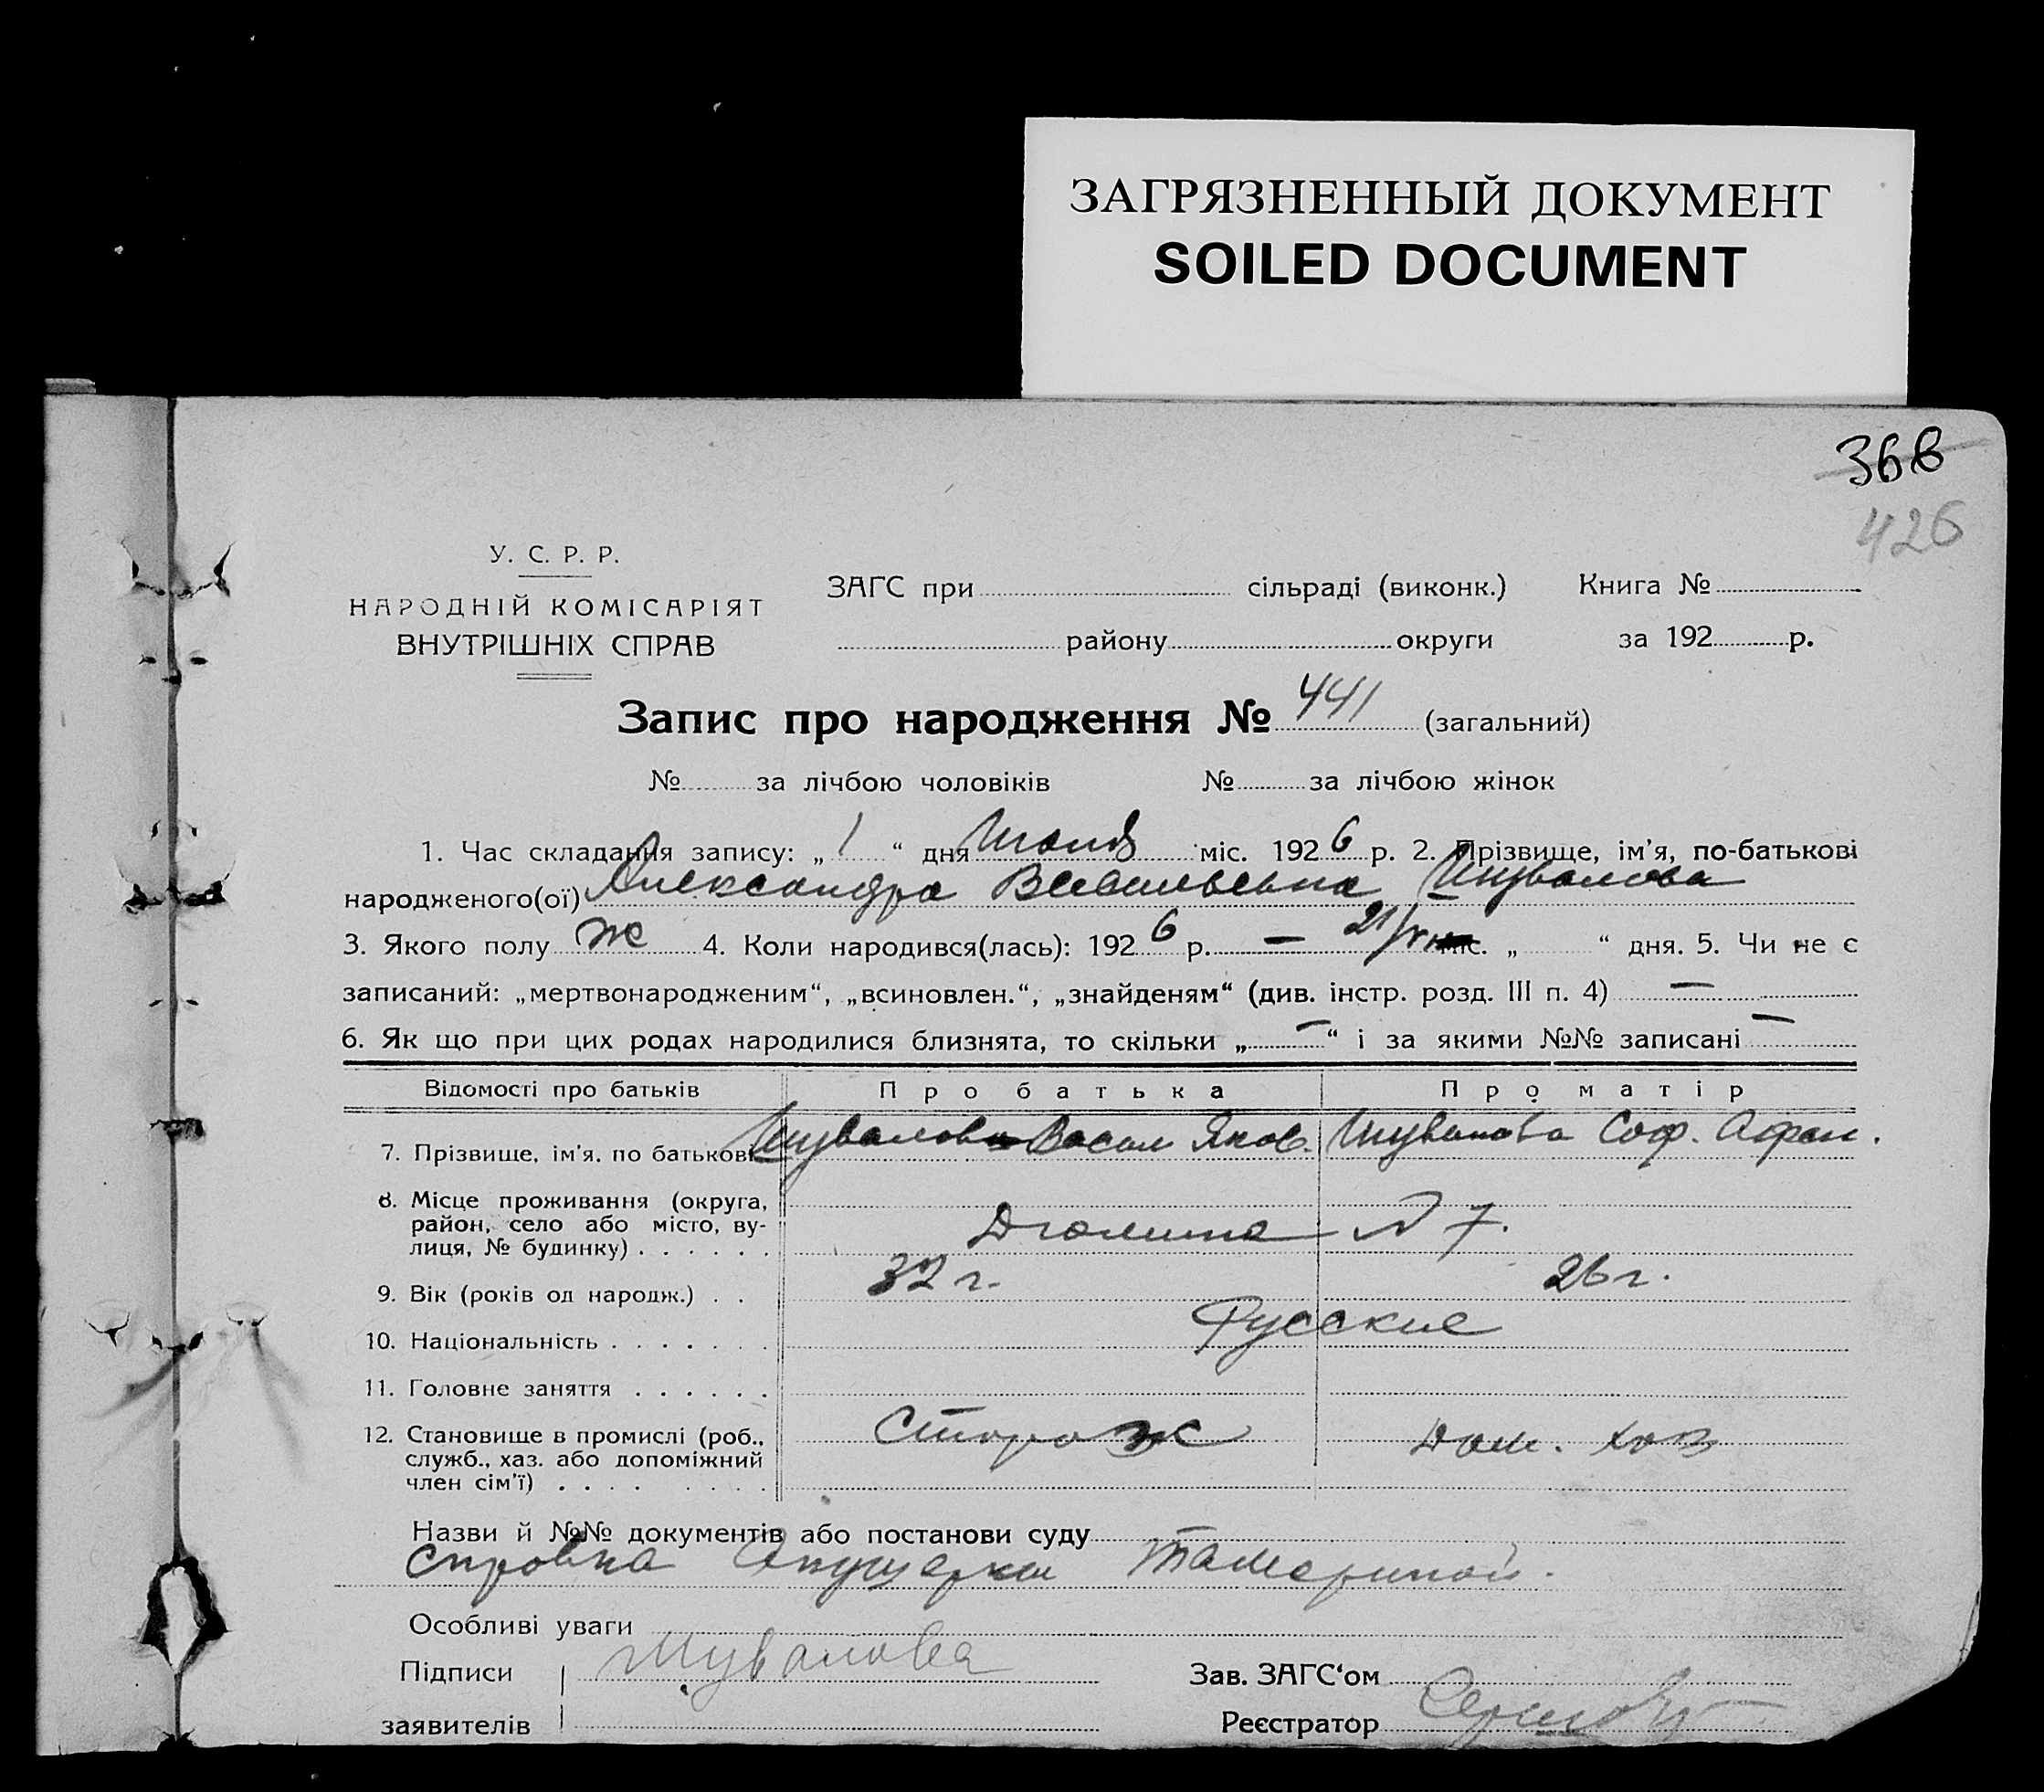 ЗАГРЯЗНЕННЫЙ ДОКУМЕНТ
SOILED DOCUMENT
368
426
У. С. Р. Р.
НАРОДНІЙ КОМІСАРІЯТ
ВНУТРІШНІХ СПРАВ
ЗАГС при сільраді (виконк.) Книга №
району округи за 192 р.
Запис про народження № 441 (загальний)
№ за лічбою чоловіків № за лічбою жінок
1. Час складання запису: „1“ дня Июля міс. 1926 р. 2. Прізвище, ім’я, по-батькові
народженого(ої) Александра Васильевна Шувалова
3. Якого полу ж 4. Коли народився(лась): 1926 р. — 21/VI міс. „ “ дня. 5. Чи не є
записаний: „мертвонародженим“, „всиновлен.“, „знайденям“ (див. інстр. розд. III п. 4) —
6. Як що при цих родах народилися близнята, то скільки „—“ і за якими №№ записані —
Відомості про батьків Про батька Про матір
7. Прізвище, ім’я, по батькові Шувалов Васил Яков. Шувалова Соф. Афан.
8. Місце проживання (округа,
район, село або місто, ву-
лиця, № будинку) . . . . . . N 7.
9. Вік (років од народж.) . . 32 г. 26 г.
10. Національність . . . . . . . Русские
11. Головне заняття . . . . . .
12. Становище в промислі (роб., Сторож Дом. хоз
служб., хаз. або допоміжний
член сім’ї) . . . . . . . .
Назви й №№ документів або постанови суду
справка Акушерки Тамариной.
Особливі уваги
Підписи Шувалова Зав. ЗАГС‘ом
заявителів Реєстратор